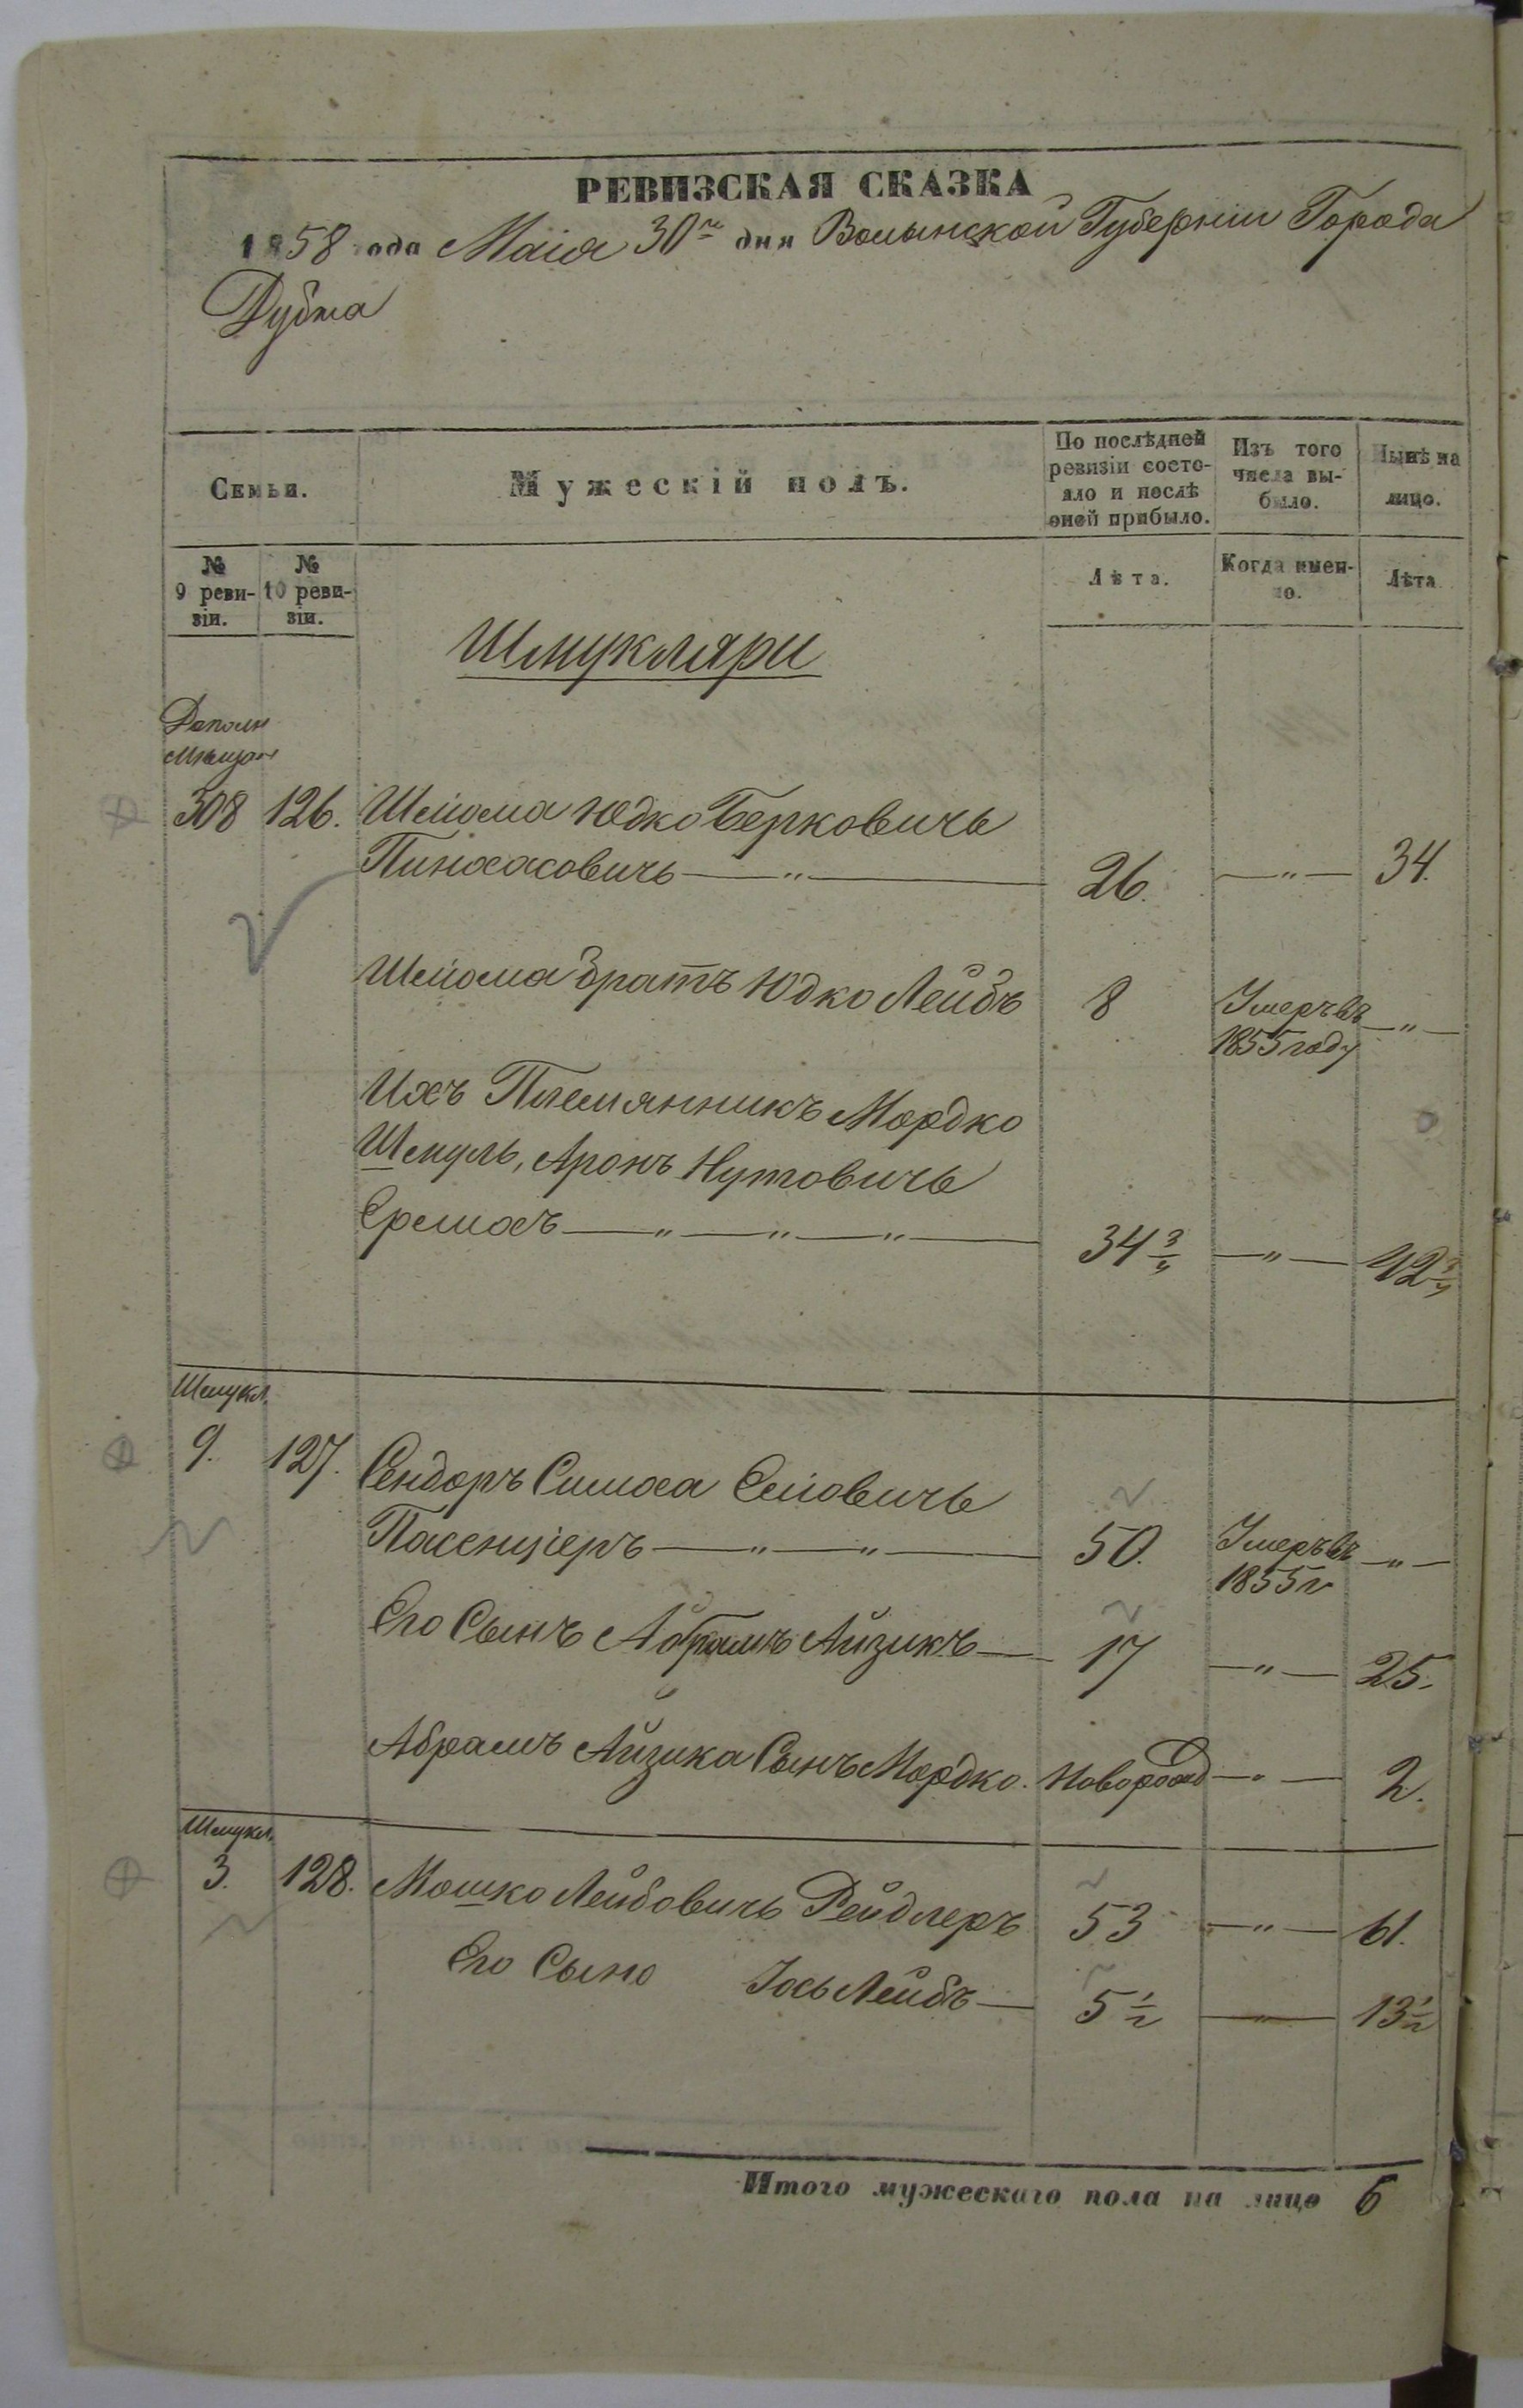 РЕВИЗСКАЯ СКАЗКА
1858 года Маія 30го дня Волынской Губерніи Города
Дубна
Семьи.
Мужескій полъ.
По послѣдней ревизіи состояло и послѣ оной прибыло.
Изъ того числа выбыло.
Нынѣ на лицо.
№ 9 ревизіи.
№ 10 ревизіи.
Лѣта.
Когда именно.
Лѣта
Шмукляри
Дополн
Мѣщан
308 126. Шлiома Юдко Берковичь
Пинхасовичь — " — 26. — " — 34.
Шлiома братъ Юдко Лейбъ 8 Умеръ въ — " —
1855 году
Ихъ Племянникъ Мордко
Шмуль, Аронъ Нутовичь
Ермохъ — " — " — " — 34 3/4 — " — 42 3/4
Шмукл.
9. 127. Сендоръ Симха Еліовичь
Пасенціеръ — " — " — 50. Умеръ въ — " —
1855 г
Его Сынъ Абрамъ Айзикъ — 17 — " — 25.
Абрамъ Айзика Сынъ Мордко. Новорожд — " — 2.
Шмукл.
3. 128. Мошко Лейбовичь Рейдлеръ 53 — " — 61.
Его Сынъ Іось Лейбъ — 5 1/2 — " — 13 1/2
Итого мужескаго пола на лицо 6